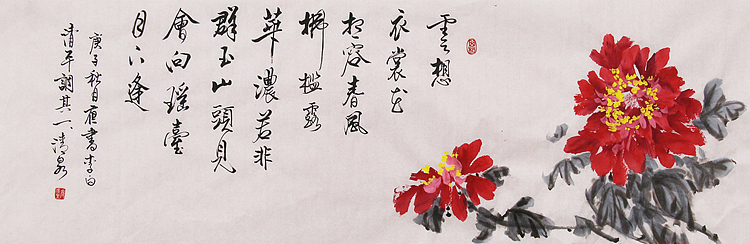 雲想
衣裳花
想容春風
拂檻露
華濃若非
群玉山頭見
會向瑤臺
月下逢
庚子秋日書李白
清平調其一清泉